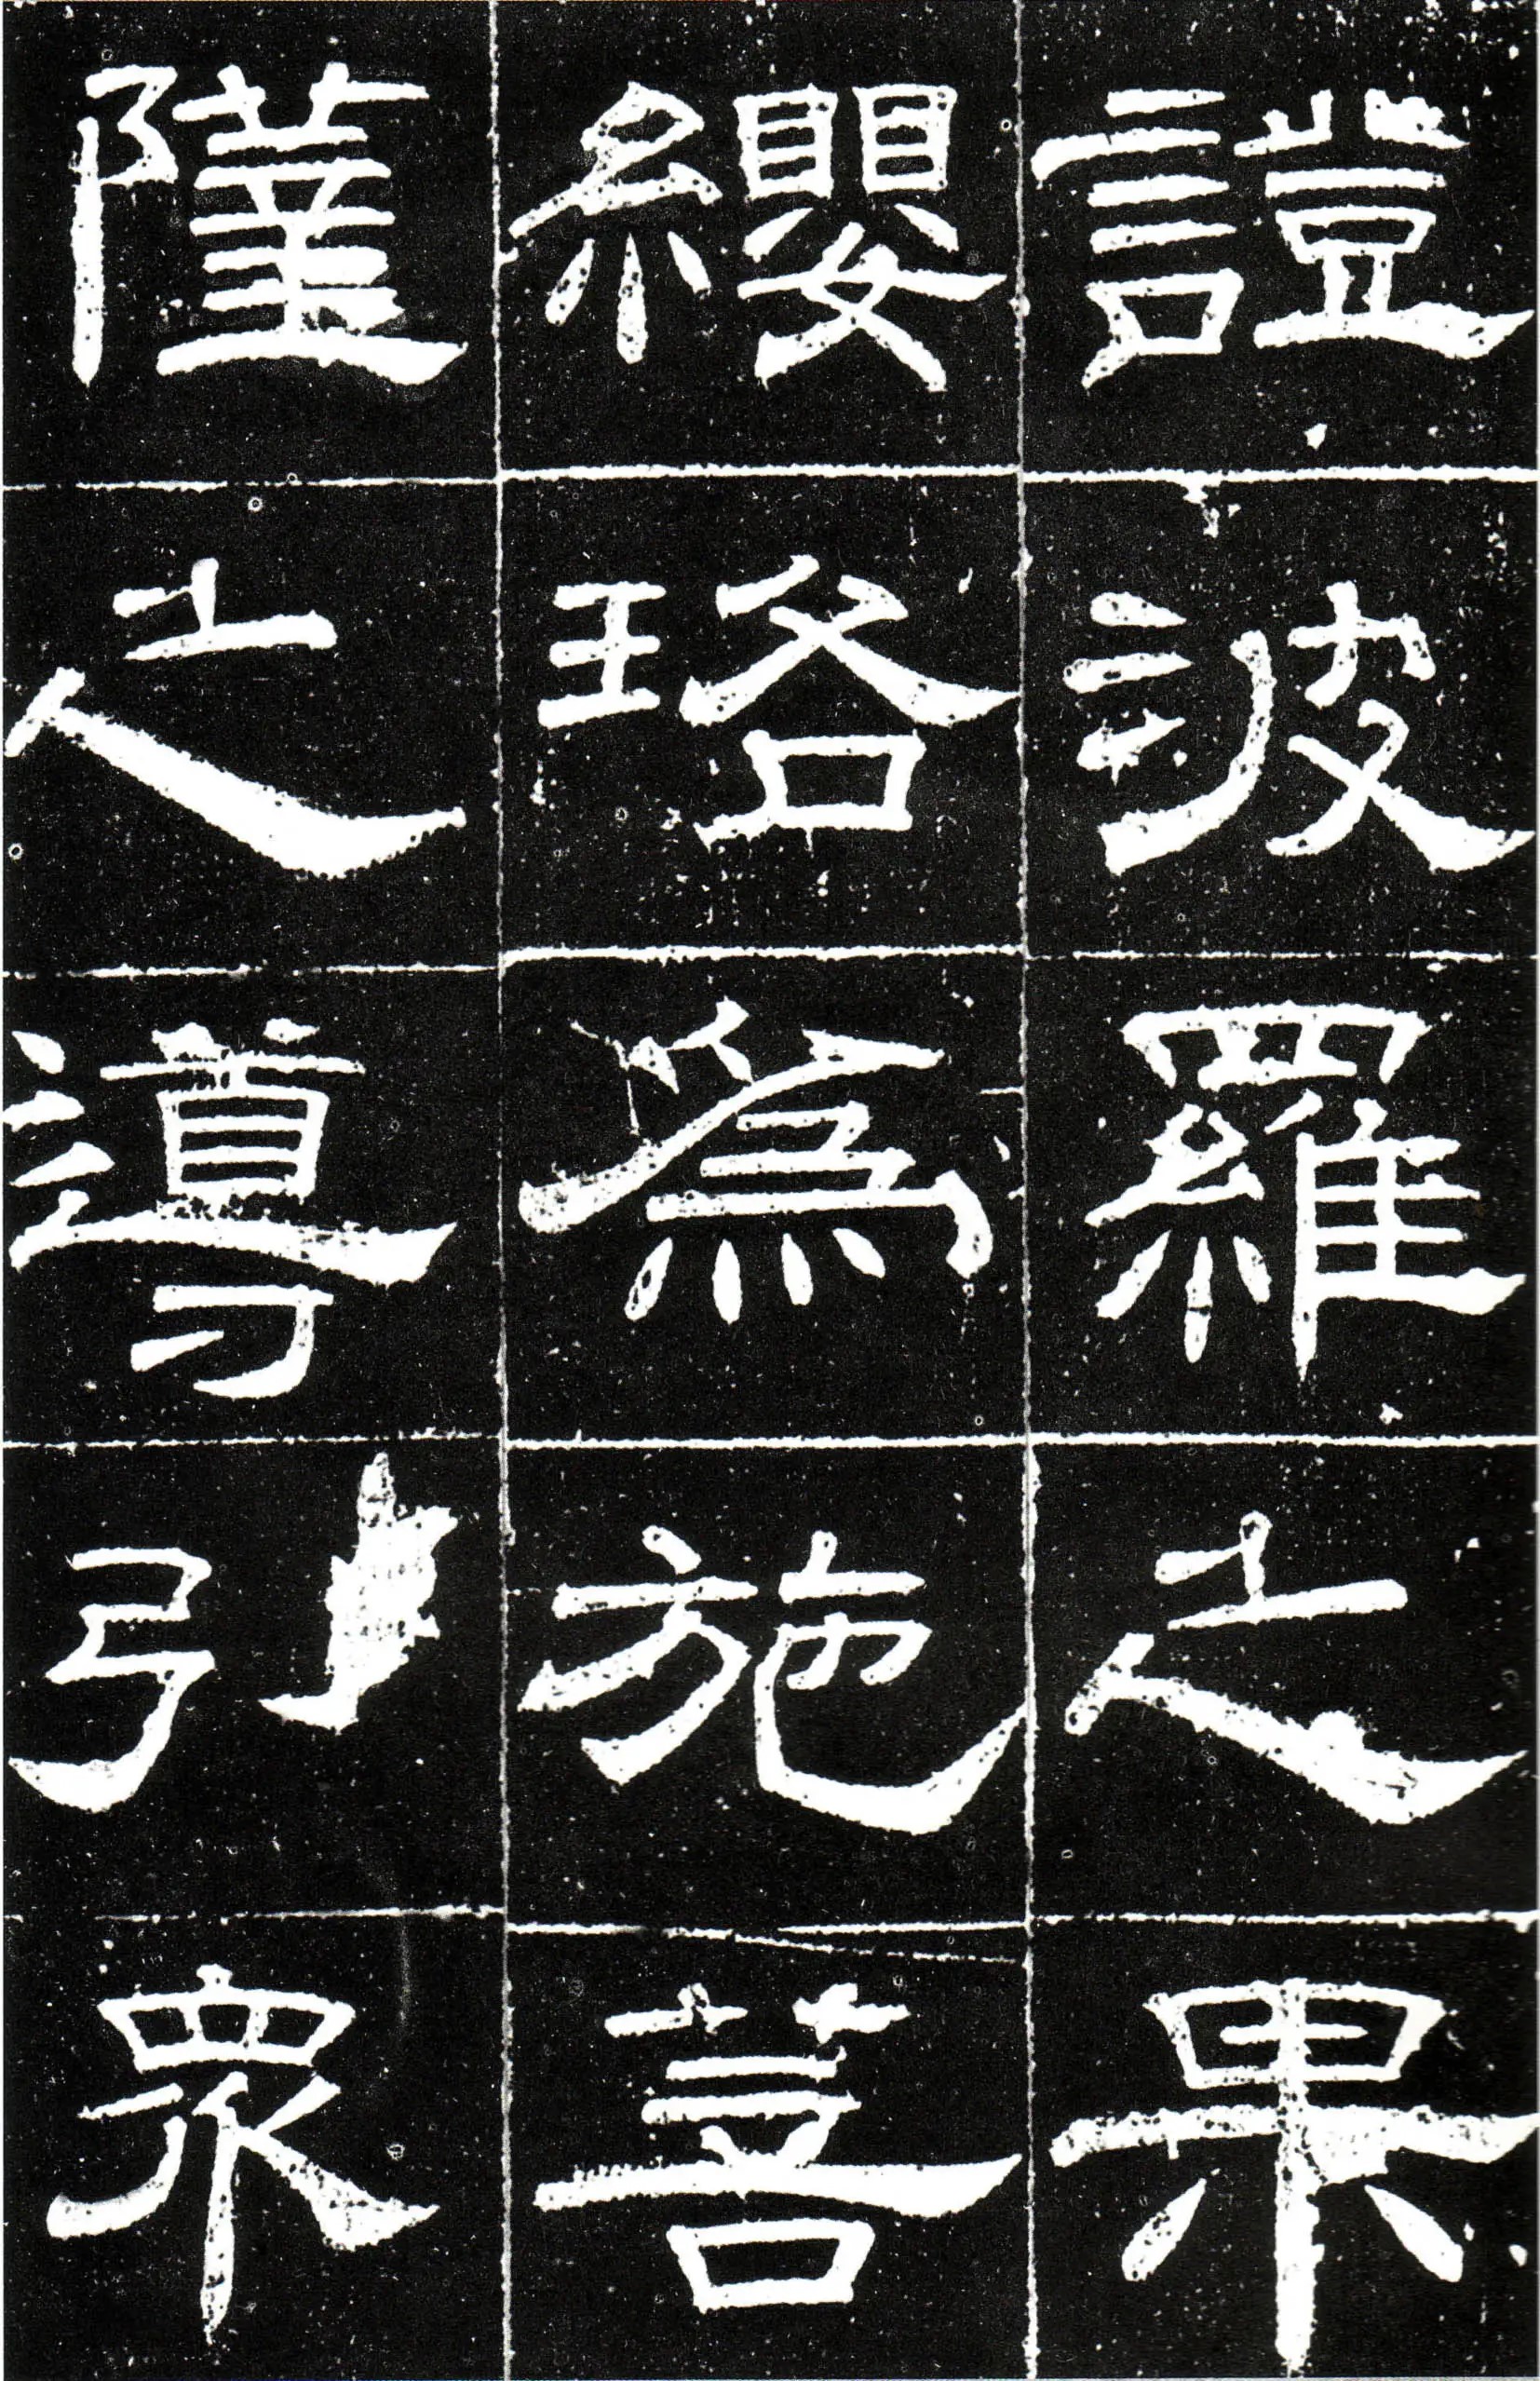 證波羅之果
纓珞爲施菩
薩之導引衆